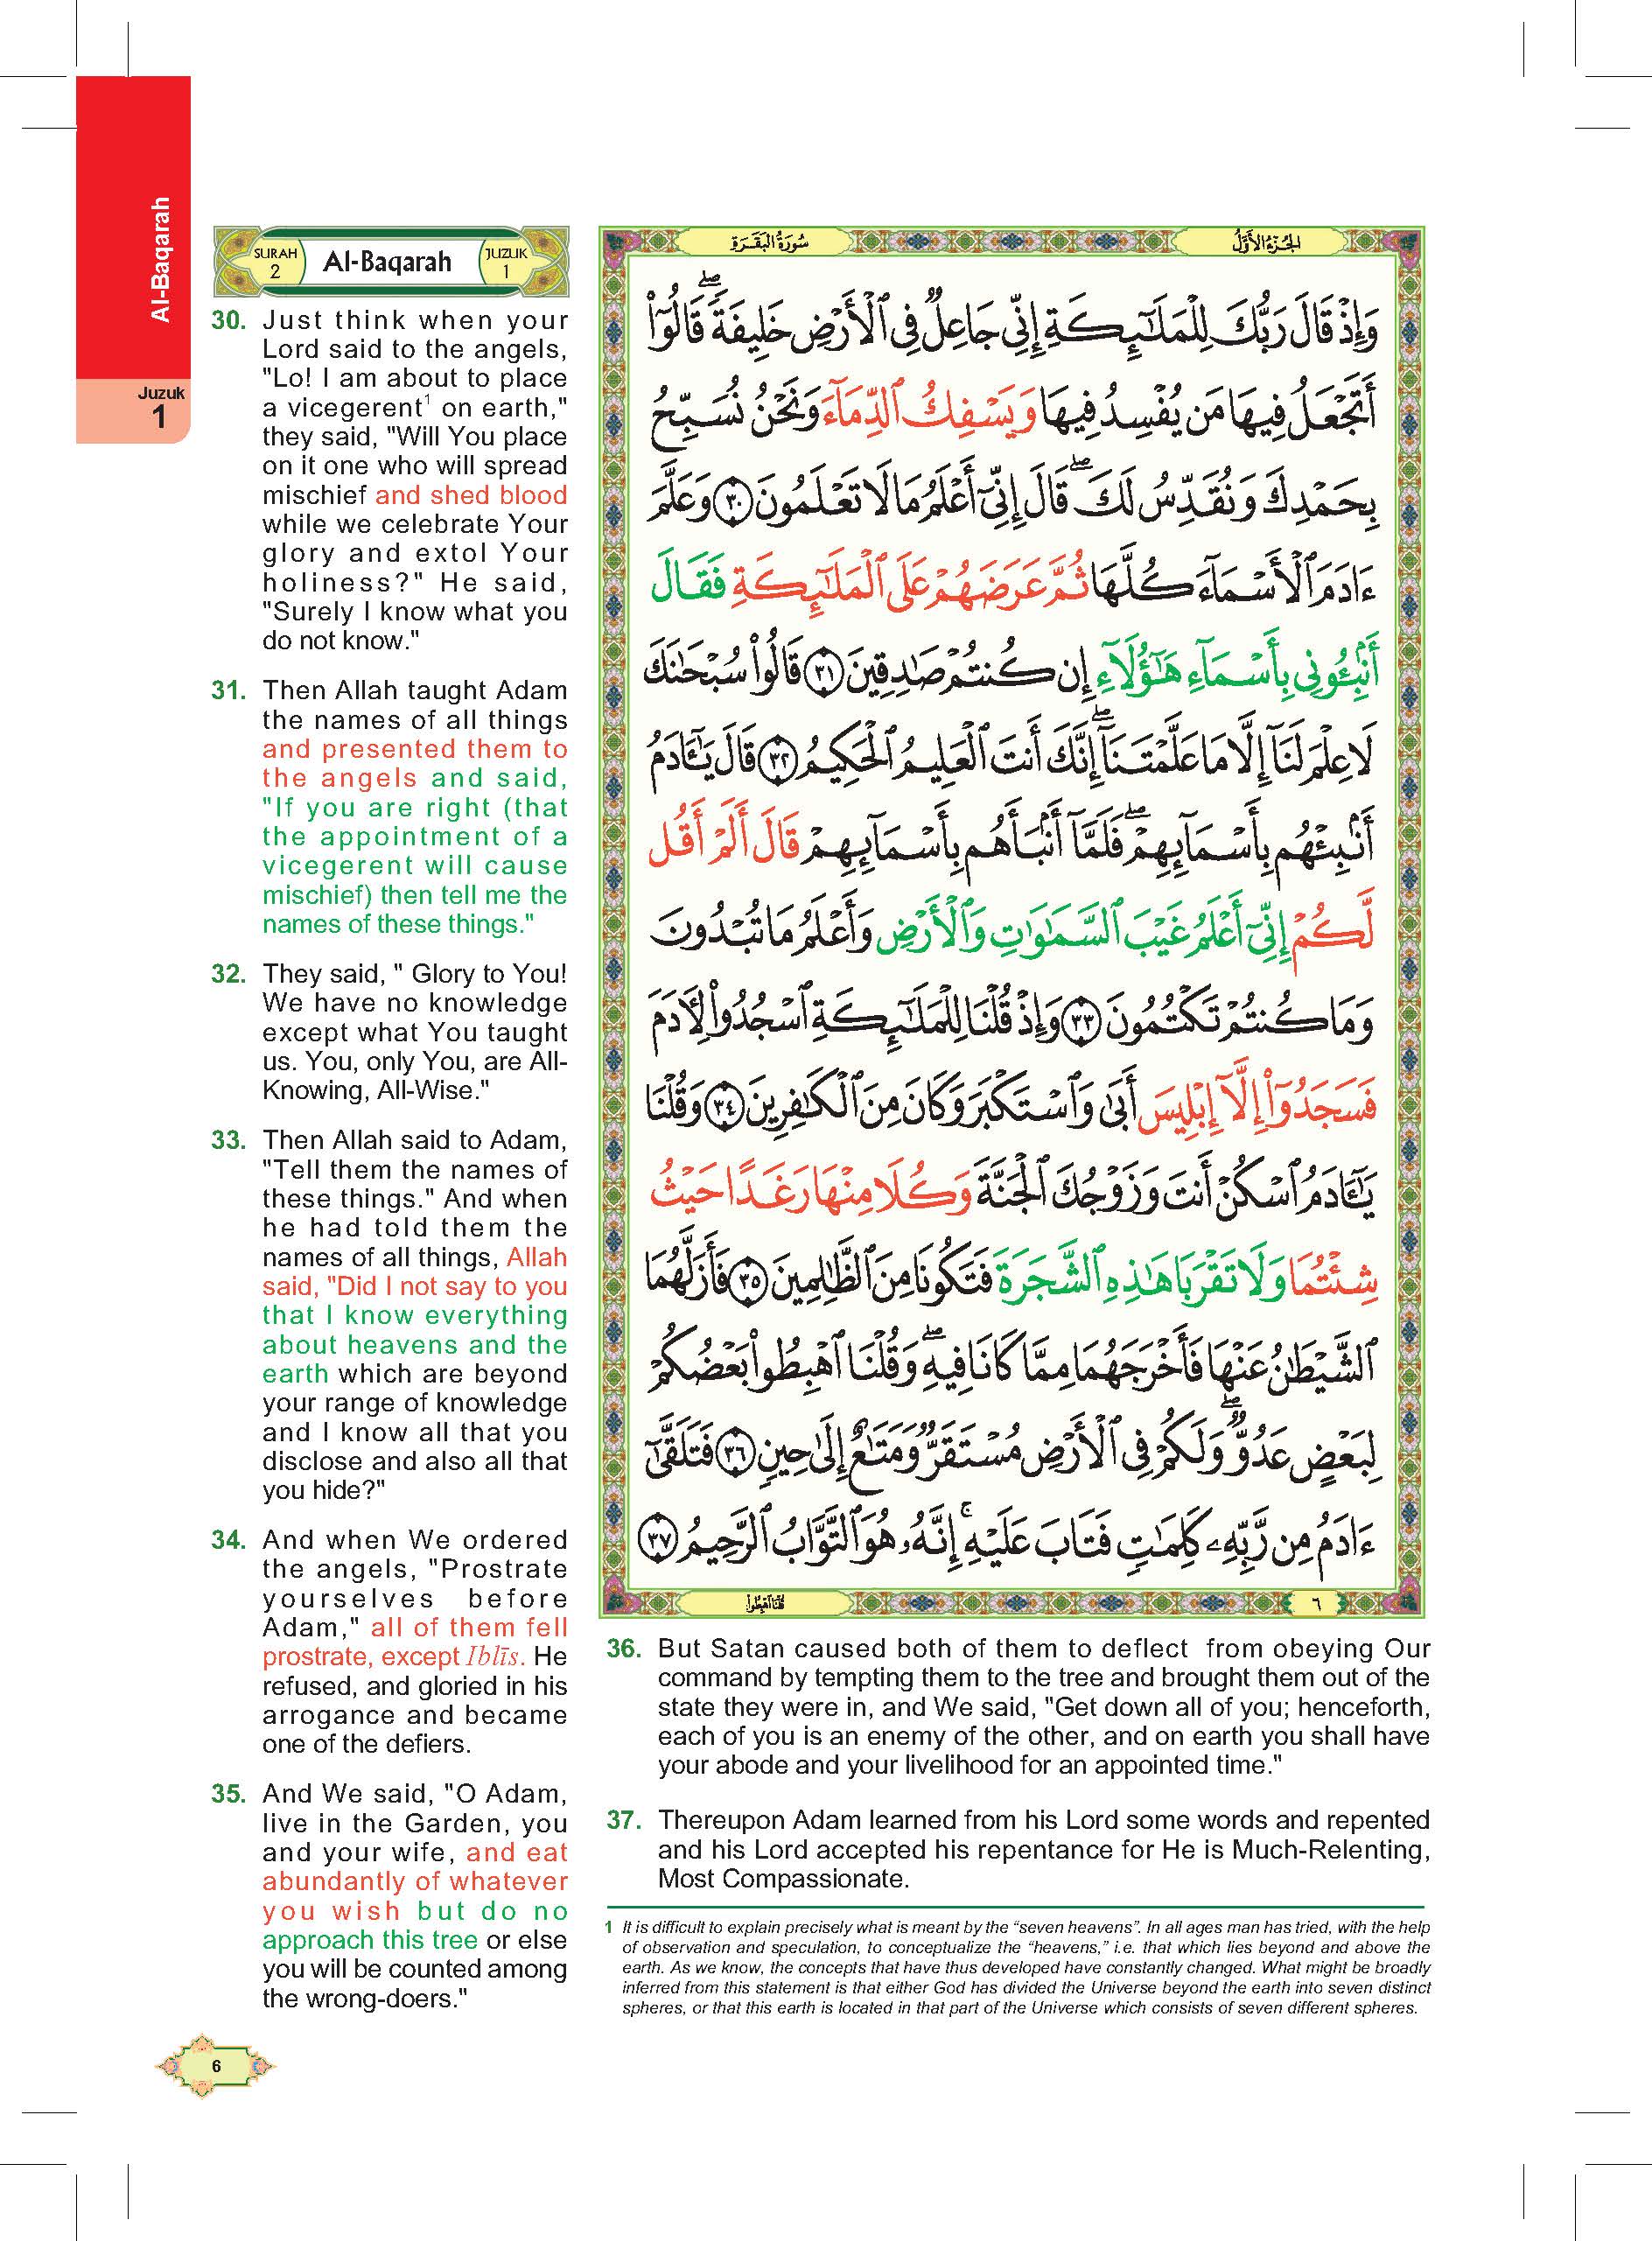 Al-Baqarah
Juzuk
1
SURAH
2
Al-Baqarah
JUZUK
1
30. Just think when your
Lord said to the angels,
"Lo! I am about to place
a vicegerent1 on earth,"
they said, "Will You place
on it one who will spread
mischief and shed blood
while we celebrate Your
glory and extol Your
holiness?" He said,
"Surely I know what you
do not know."
31. Then Allah taught Adam
the names of all things
and presented them to
the angels and said,
"If you are right (that
the appointment of a
vicegerent will cause
mischief) then tell me the
names of these things."
32. They said, " Glory to You!
We have no knowledge
except what You taught
us. You, only You, are All-
Knowing, All-Wise."
33. Then Allah said to Adam,
"Tell them the names of
these things." And when
he had told them the
names of all things, Allah
said, "Did I not say to you
that I know everything
about heavens and the
earth which are beyond
your range of knowledge
and I know all that you
disclose and also all that
you hide?"
34. And when We ordered
the angels, "Prostrate
yourselves before
Adam," all of them fell
prostrate, except Iblīs. He
refused, and gloried in his
arrogance and became
one of the defiers.
35. And We said, "O Adam,
live in the Garden, you
and your wife, and eat
abundantly of whatever
you wish but do no
approach this tree or else
you will be counted among
the wrong-doers."
الجزء الأول
سورة البقرة
وَإِذْ قَالَ رَبُّكَ لِلْمَلَـٰٓئِكَةِ إِنِّى جَاعِلٌ فِى ٱلْأَرْضِ خَلِيفَةً ۖ قَالُوٓا۟
أَتَجْعَلُ فِيهَا مَن يُفْسِدُ فِيهَا وَيَسْفِكُ ٱلدِّمَآءَ وَنَحْنُ نُسَبِّحُ
بِحَمْدِكَ وَنُقَدِّسُ لَكَ ۖ قَالَ إِنِّىٓ أَعْلَمُ مَا لَا تَعْلَمُونَ ٣٠ وَعَلَّمَ
ءَادَمَ ٱلْأَسْمَآءَ كُلَّهَا ثُمَّ عَرَضَهُمْ عَلَى ٱلْمَلَـٰٓئِكَةِ فَقَالَ
أَنۢبِـُٔونِى بِأَسْمَآءِ هَـٰٓؤُلَآءِ إِن كُنتُمْ صَـٰدِقِينَ ٣١ قَالُوا۟ سُبْحَـٰنَكَ
لَا عِلْمَ لَنَآ إِلَّا مَا عَلَّمْتَنَآ ۖ إِنَّكَ أَنتَ ٱلْعَلِيمُ ٱلْحَكِيمُ ٣٢ قَالَ يَـٰٓـَٔادَمُ
أَنۢبِئْهُم بِأَسْمَآئِهِمْ ۖ فَلَمَّآ أَنۢبَأَهُم بِأَسْمَآئِهِمْ قَالَ أَلَمْ أَقُل
لَّكُمْ إِنِّىٓ أَعْلَمُ غَيْبَ ٱلسَّمَـٰوَٰتِ وَٱلْأَرْضِ وَأَعْلَمُ مَا تُبْدُونَ
وَمَا كُنتُمْ تَكْتُمُونَ ٣٣ وَإِذْ قُلْنَا لِلْمَلَـٰٓئِكَةِ ٱسْجُدُوا۟ لِـَٔادَمَ
فَسَجَدُوٓا۟ إِلَّآ إِبْلِيسَ أَبَىٰ وَٱسْتَكْبَرَ وَكَانَ مِنَ ٱلْكَـٰفِرِينَ ٣٤ وَقُلْنَا
يَـٰٓـَٔادَمُ ٱسْكُنْ أَنتَ وَزَوْجُكَ ٱلْجَنَّةَ وَكُلَا مِنْهَا رَغَدًا حَيْثُ
شِئْتُمَا وَلَا تَقْرَبَا هَـٰذِهِ ٱلشَّجَرَةَ فَتَكُونَا مِنَ ٱلظَّـٰلِمِينَ ٣٥ فَأَزَلَّهُمَا
ٱلشَّيْطَـٰنُ عَنْهَا فَأَخْرَجَهُمَا مِمَّا كَانَا فِيهِ ۖ وَقُلْنَا ٱهْبِطُوا۟ بَعْضُكُمْ
لِبَعْضٍ عَدُوٌّ ۖ وَلَكُمْ فِى ٱلْأَرْضِ مُسْتَقَرٌّ وَمَتَـٰعٌ إِلَىٰ حِينٍ ٣٦ فَتَلَقَّىٰٓ
ءَادَمُ مِن رَّبِّهِۦ كَلِمَـٰتٍ فَتَابَ عَلَيْهِ ۚ إِنَّهُۥ هُوَ ٱلتَّوَّابُ ٱلرَّحِيمُ ٣٧
٦
قُلْنَا اهْبِطُوا
36. But Satan caused both of them to deflect from obeying Our
command by tempting them to the tree and brought them out of the
state they were in, and We said, "Get down all of you; henceforth,
each of you is an enemy of the other, and on earth you shall have
your abode and your livelihood for an appointed time."
37. Thereupon Adam learned from his Lord some words and repented
and his Lord accepted his repentance for He is Much-Relenting,
Most Compassionate.
1 It is difficult to explain precisely what is meant by the “seven heavens”. In all ages man has tried, with the help
of observation and speculation, to conceptualize the “heavens,” i.e. that which lies beyond and above the
earth. As we know, the concepts that have thus developed have constantly changed. What might be broadly
inferred from this statement is that either God has divided the Universe beyond the earth into seven distinct
spheres, or that this earth is located in that part of the Universe which consists of seven different spheres.
6